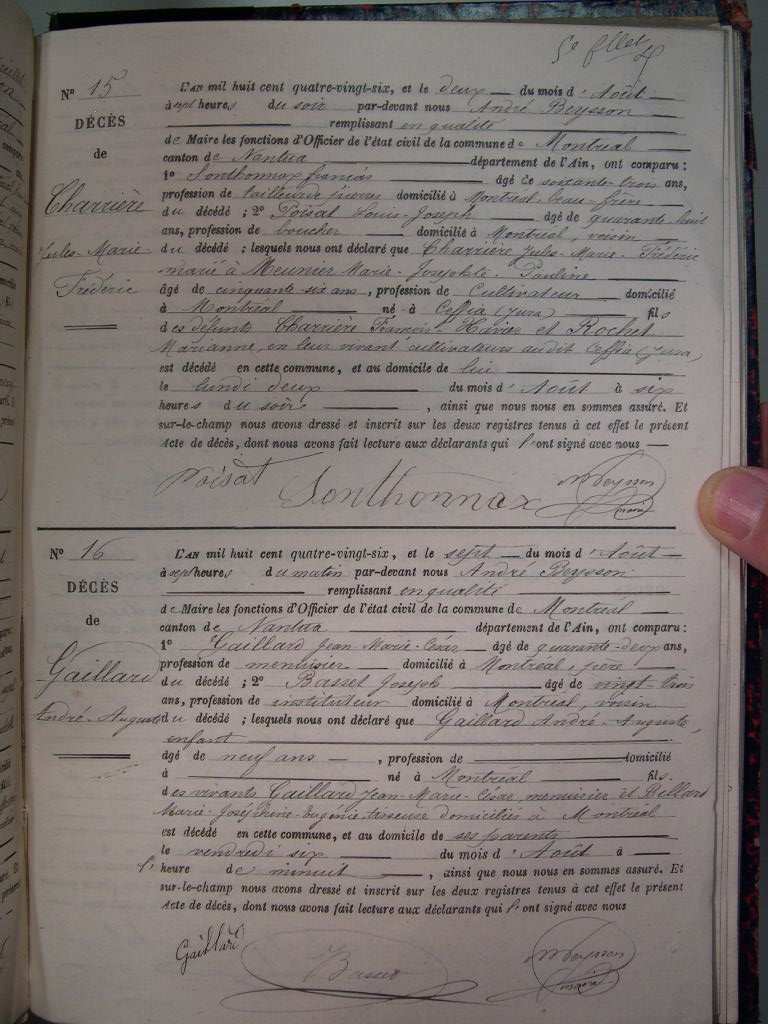 5e fllet
N° 15
DÉCÈS
de
Charrière
Jules-Marie
Frédéric
L'AN mil huit cent quatre-vingt-six, et le deux du mois d'Août
à sept heures du soir par-devant nous André Beysson
remplissant en qualité
de Maire les fonctions d'Officier de l'état civil de la commune de Montréal
canton de Nantua département de l'Ain, ont comparu :
1° Sonthonnax françois âgé de soixante-trois ans,
profession de tailleur de pierres domicilié à Montréal, beau-frère
du décédé ; 2° Poisat Louis-Joseph âgé de quarante huit
ans, profession de boucher domicilié à Montréal, voisin
du décédé ; lesquels nous ont déclaré que Charrière Jules-Marie-Frédéric
marié à Meunier Marie-Josephte-Pauline
âgé de cinquante six ans, profession de Cultivateur domicilié
à Montréal né à Ceffia (Jura) fils
des défunts Charrière François-Xavier et Rochet
Marianne, en leur vivant cultivateurs au dit Ceffia (Jura)
est décédé en cette commune, et au domicile de lui
le lundi deux du mois d'Août à six
heures du soir, ainsi que nous nous en sommes assuré. Et
sur-le-champ nous avons dressé et inscrit sur les deux registres tenus à cet effet le présent
Acte de décès, dont nous avons fait lecture aux déclarants qui l'ont signé avec nous
Poisat Sonthonnax Beysson
maire
N° 16
DÉCÈS
de
Gaillard
André-Auguste
L'AN mil huit cent quatre-vingt-six, et le sept du mois d'Août
à sept heures du matin par-devant nous André Beysson
remplissant en qualité
de Maire les fonctions d'Officier de l'état civil de la commune de Montréal
canton de Nantua département de l'Ain, ont comparu :
1° Gaillard Jean-Marie-César âgé de quarante-deux ans,
profession de menuisier domicilié à Montréal, père
du décédé ; 2° Basset Joseph âgé de vingt-trois
ans, profession de instituteur domicilié à Montréal, voisin
du décédé ; lesquels nous ont déclaré que Gaillard André-Auguste,
enfant
âgé de neuf ans, profession de domicilié
à né à Montréal fils
des vivants Gaillard Jean-Marie-César, menuisier et Billard
Marie-Joséphine-Eugénie tisseuse domiciliés à Montréal
est décédé en cette commune, et au domicile de ses parents
le vendredi six du mois d'Août à
l'heure de minuit, ainsi que nous nous en sommes assuré. Et
sur-le-champ nous avons dressé et inscrit sur les deux registres tenus à cet effet le présent
Acte de décès, dont nous avons fait lecture aux déclarants qui l'ont signé avec nous
Gaillard Basset Beysson
maire